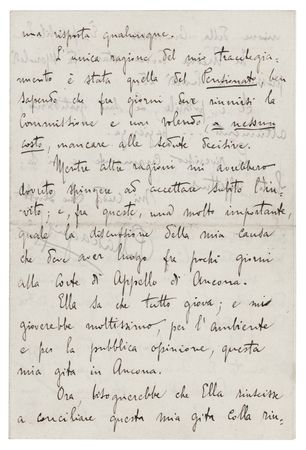 una risposta qualunque.
L'unica ragione del mio tracchegia-
mento è stata quella del Pensionato, ben
sapendo che fra giorni deve riunirsi la
Commissione e non volendo, a nessun
costo, mancare alle sedute decisive.
Mentre altre ragioni mi avrebbero
dovuto spingere ad accettare subito l'in-
vito; e, fra queste, una molto importante,
quale la discussione della mia causa
che deve aver luogo fra pochi giorni
alla Corte di Appello di Ancona.
Ella sa che tutto giova; e mi
gioverebbe moltissimo, per l'ambiente
e per la pubblica opinione, questa
mia gita in Ancona.
Ora, bisognerebbe che Ella riuscisse
a conciliare questa mia gita colla riu-